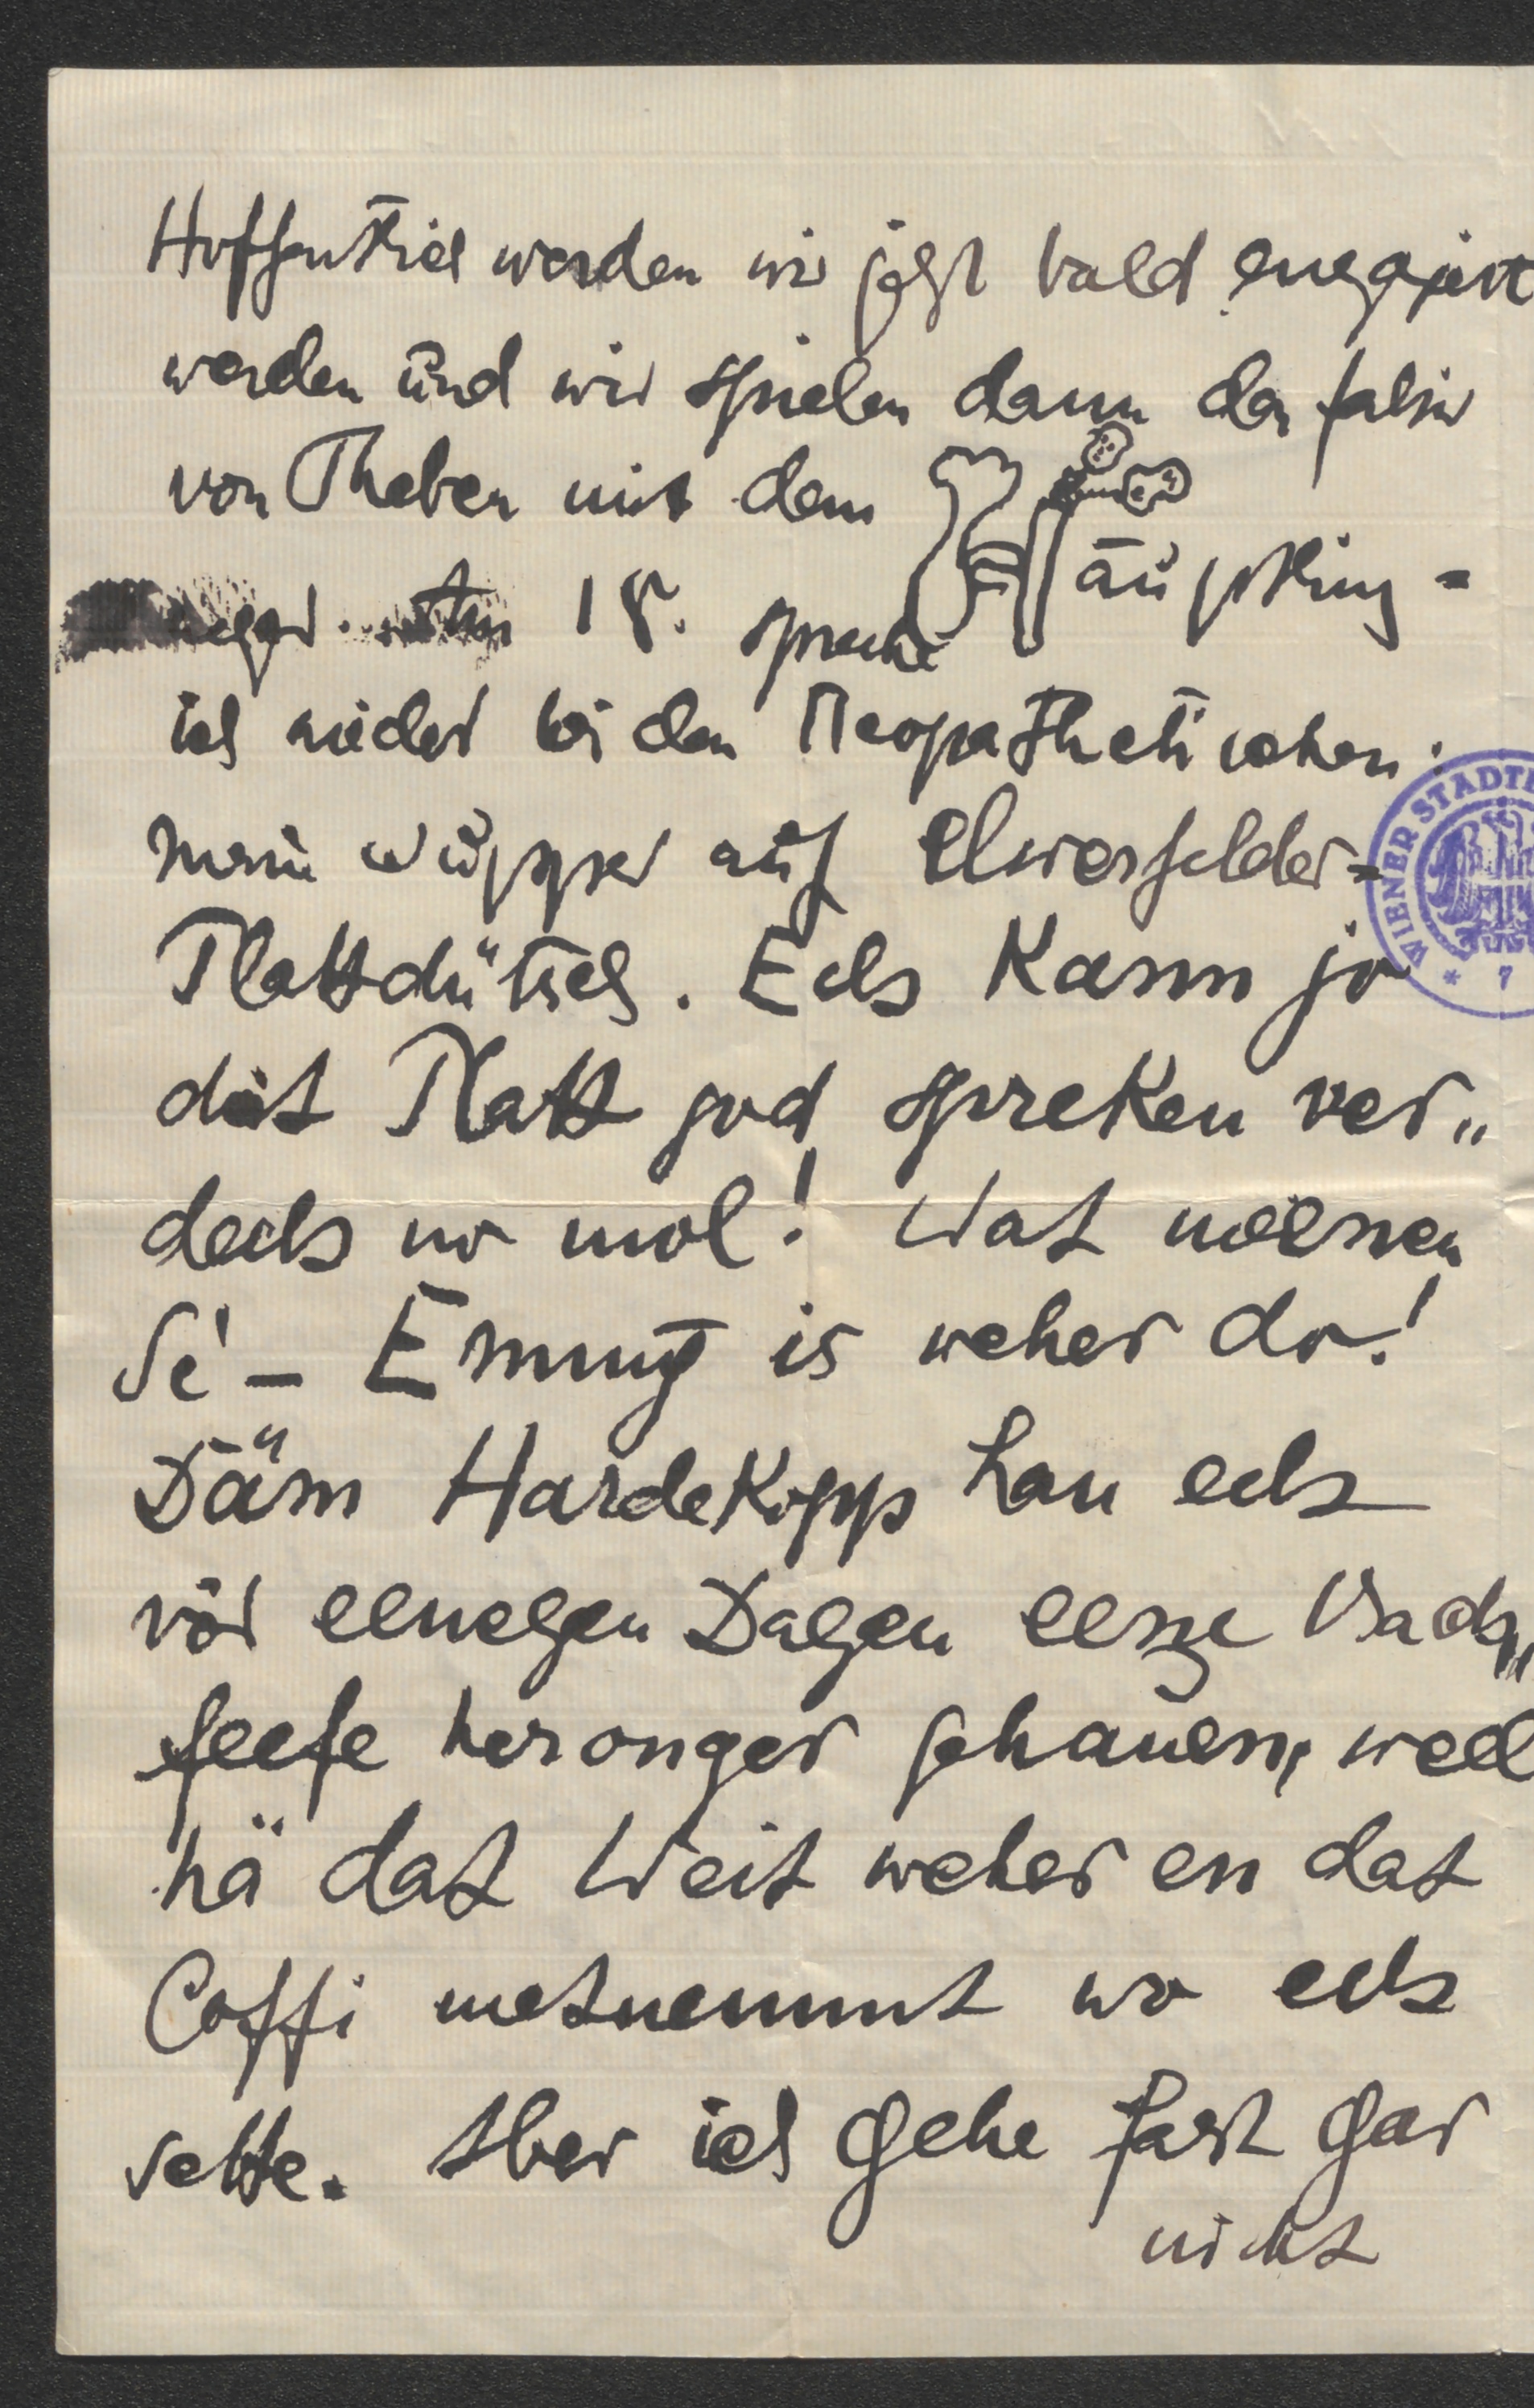 Hoffentlich werden wir jetzt bald engagirt
werden und wir spielen dann den Fakir
von Theben mit dem
äuptling =
neger. Am 18. spreche
ich wieder bei den Neopathetischen:
meine Wupper auf Elwerfelder=
Plattdütsch. Eck kann jo
dat Platt god spreken ver„
deck no mol! Wat meenen
Se' – Emmy is weher do!
Däm Hardekopp han eck
vör eenegen Dagen eene Back„
feefe heronger gehauen, weel
hä dat Weit weher en dat
Coffi metnemmt wo eck
sette. Aber ich gehe fast gar
nicht
WIENER STADT
* 7